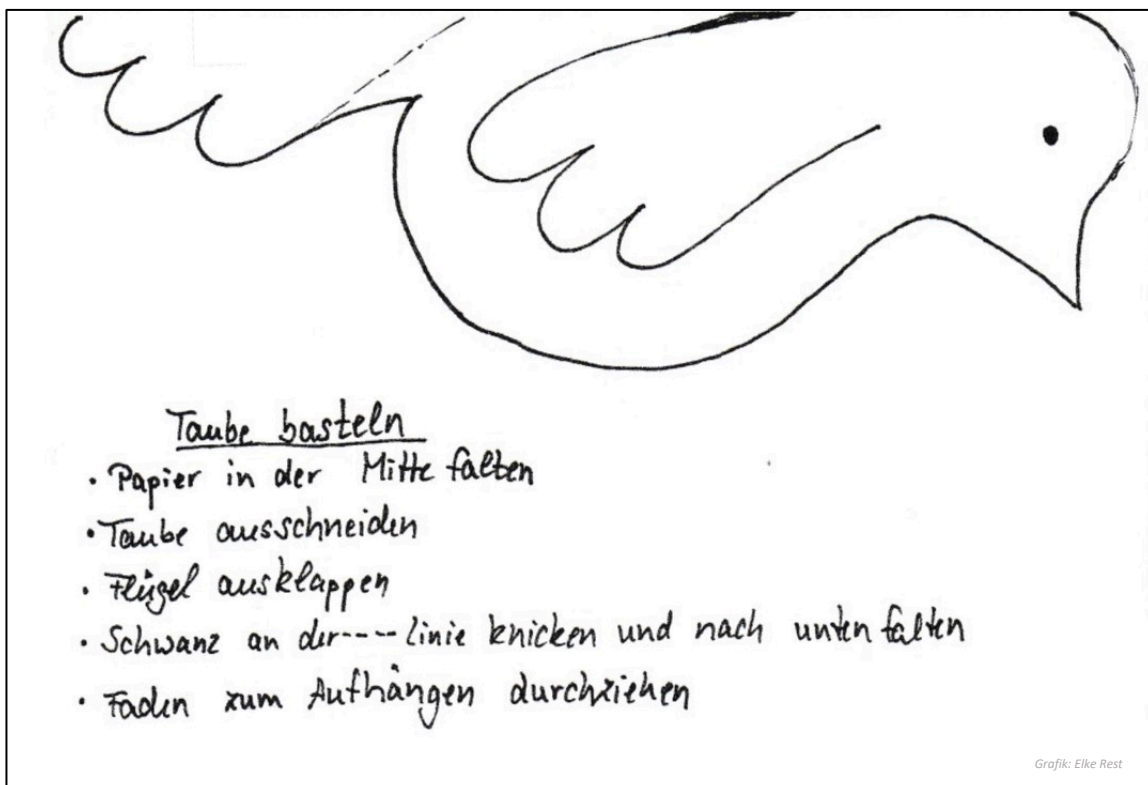 Taube basteln
• Papier in der Mitte falten
• Taube ausschneiden
• Flügel ausklappen
• Schwanz an der---- linie knicken und nach unten falten
• Faden zum Aufhängen durchziehen
Grafik: Elke Rest